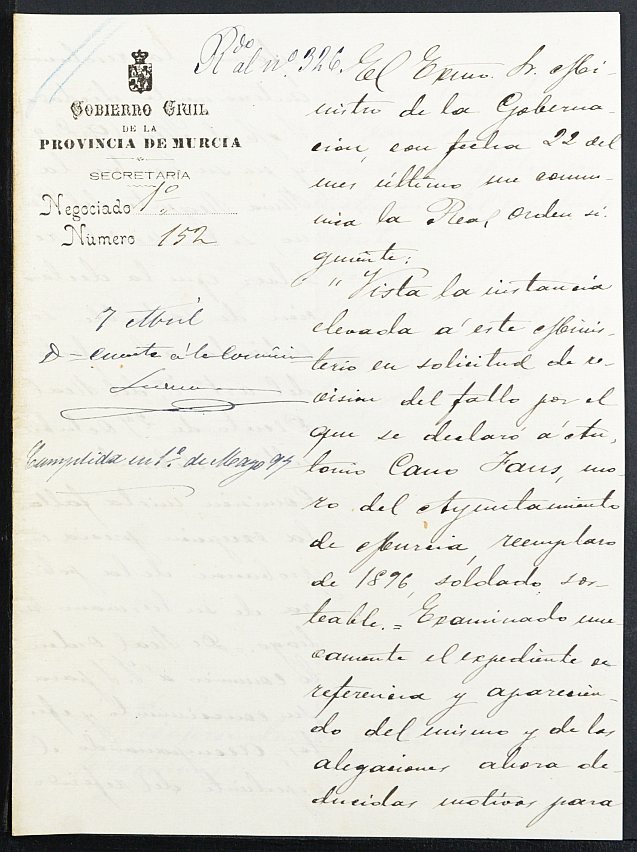 Rdo al nº. 326.
GOBIERNO CIVIL
DE LA
PROVINCIA DE MURCIA
SECRETARÍA
Negociado 1º
Número 152
7 Abril
D- cuenta á la Comisión
Cumplida en 1º. de Mayo 97
El Exmo. Sr. Mi-
nistro de la Goberna-
ción, con fecha 22 del
mes último me comu-
nica la Real orden si-
guiente:
"Vista la instancia
elevada á este Minis-
terio en solicitud de re-
vision del fallo por el
que se declaró á An-
tonio Cano Fans, mo-
zo del Ayuntamiento
de Murcia, reemplazo
de 1896, soldado sor-
teable. = Examinado nue-
vamente el expediente de
referencia y aparecien-
do del mismo y de las
alegaciones ahora de-
ducidas motivos para